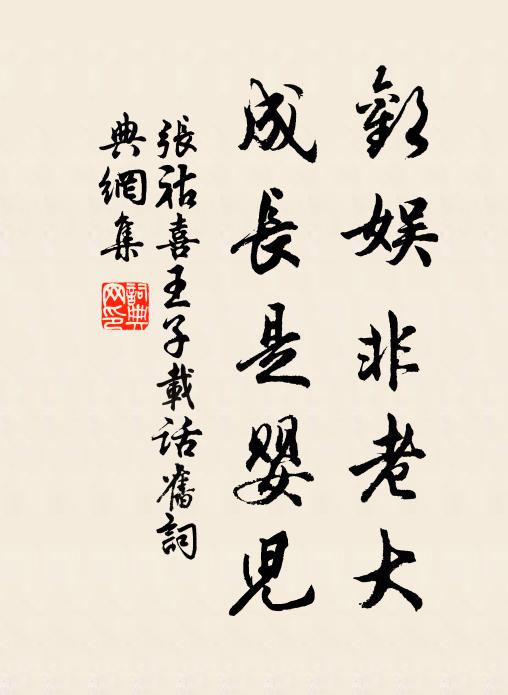 歡娛非老大
成長是嬰兒
張祜喜王子載話舊詞
典網集
詞典網印